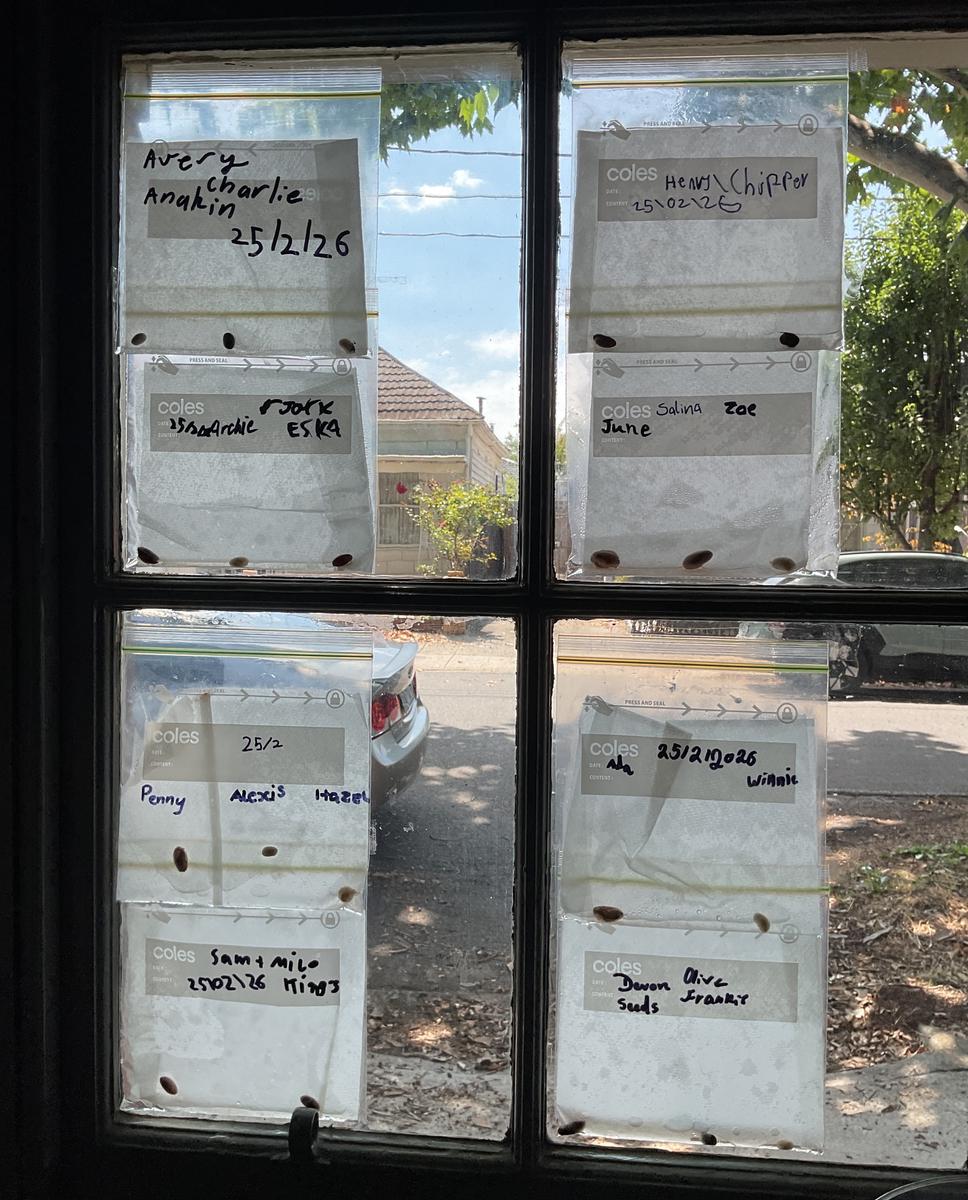 Avery
Charlie
Anakin
25/2/26
PRESS AND SEAL
coles
DATE:
CONTENT:
Henry\Chipper
25\02\26
PRESS AND SEAL
coles
Archie
ESKA
PRESS AND SEAL
coles Salina Zoe
June
CONTENT:
coles
25/2
Penny Alexis Hazel
PRESS AND SEAL
coles
DATE:
CONTENT:
Ada 25/2/2026
Winnie
coles
Sam + Milo
25\02\26
coles
Devon Olive
Seeds Frankie